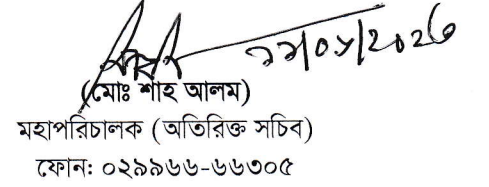 (মোঃ শাহ আলম)
মহাপরিচালক (অতিরিক্ত সচিব)
ফোন: ০২৯৯৬৬-৬৬৩০৫